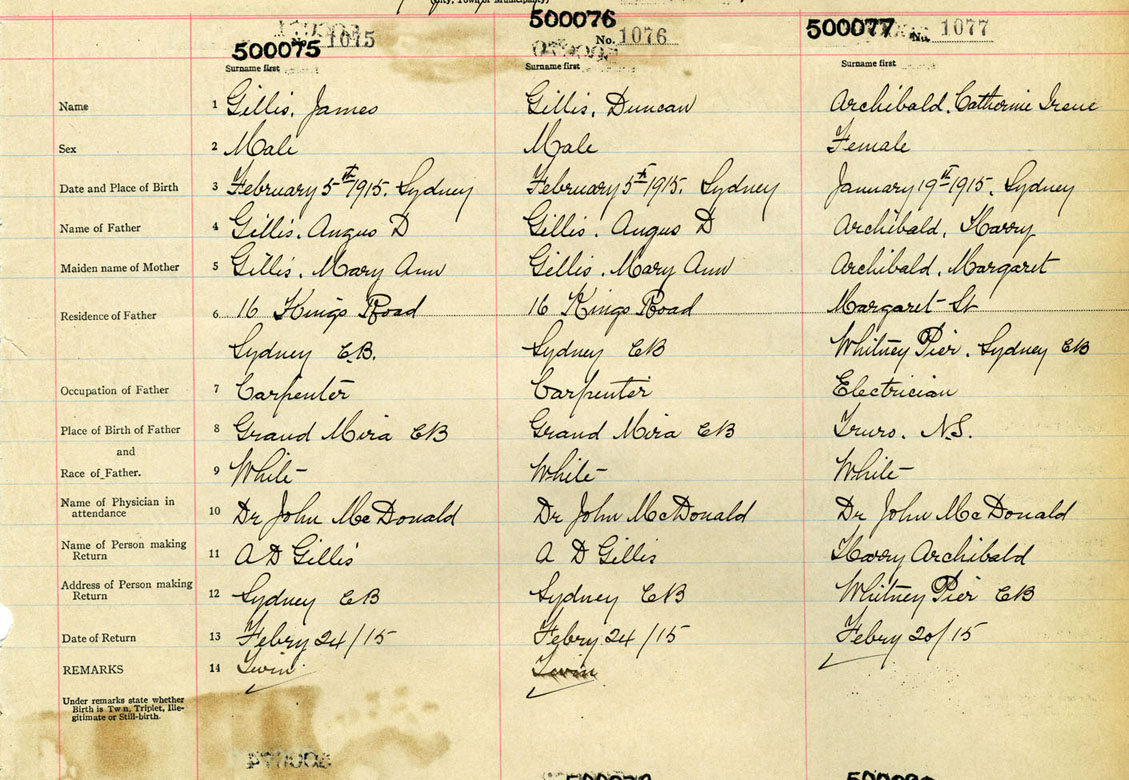 (City, Town or Municipality)
500075 1075
500076 No. 1076
500077 No. 1077
Surname first Surname first Surname first
Name 1 Gillis, James Gillis, Duncan Archibald, Catherine Irene
Sex 2 Male Male Female
Date and Place of Birth 3 February 5th 1915. Sydney February 5th 1915. Sydney January 19th 1915. Sydney
Name of Father 4 Gillis, Angus D Gillis, Angus D Archibald, Harry
Maiden name of Mother 5 Gillis, Mary Ann Gillis, Mary Ann Archibald, Margaret
Residence of Father 6 16 Kings Road 16 Kings Road Margaret St
Sydney C.B. Sydney CB Whitney Pier, Sydney CB
Occupation of Father 7 Carpenter Carpenter Electrician
Place of Birth of Father 8 Grand Mira CB Grand Mira CB Truro. N.S.
and
Race of Father. 9 White White White
Name of Physician in
attendance 10 Dr John McDonald Dr John McDonald Dr John McDonald
Name of Person making
Return 11 A D Gillis A D Gillis Harry Archibald
Address of Person making
Return 12 Sydney CB Sydney CB Whitney Pier CB
Date of Return 13 Febry 24/15 Febry 24/15 Febry 20/15
REMARKS 14 Twin Twin
Under remarks state whether
Birth is Twin, Triplet, Ille-
gitimate or Still-birth.